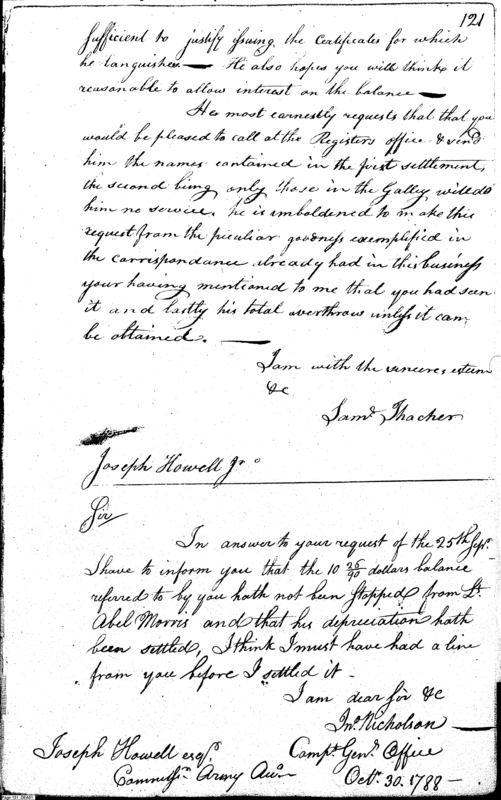 121
sufficient to justify issuing the Certificates for which
he languishes — He also hopes you will think it
reasonable to allow interest on the balance —
He most earnestly requests that that you
would be pleased to call at the Registers office & send
him the names contained in the first settlement,
the second being only those in the Galley will do
him no service. he is imboldened to make this
request from the peculiar goodness exemplified in
the corrispondance already had in this business
your having mentioned to me that you had seen
it and lastly his total overthrow unless it can
be obtained. —
I am with the sincere, esteem
&c
Saml Thacher
Joseph Howell Jr
Sir
In answer to your request of the 25th Sepr
I have to inform you that the 10 26/90 dollars balance
referred to by you hath not been stopped from Lt
Abel Morris and that his depreciation hath
been settled, I think I must have had a line
from you before I settled it.
I am dear Sir &c
Jno Nicholson —
Compt Genl Office
Octr 30. 1788 —
Joseph Howell esqr
Army